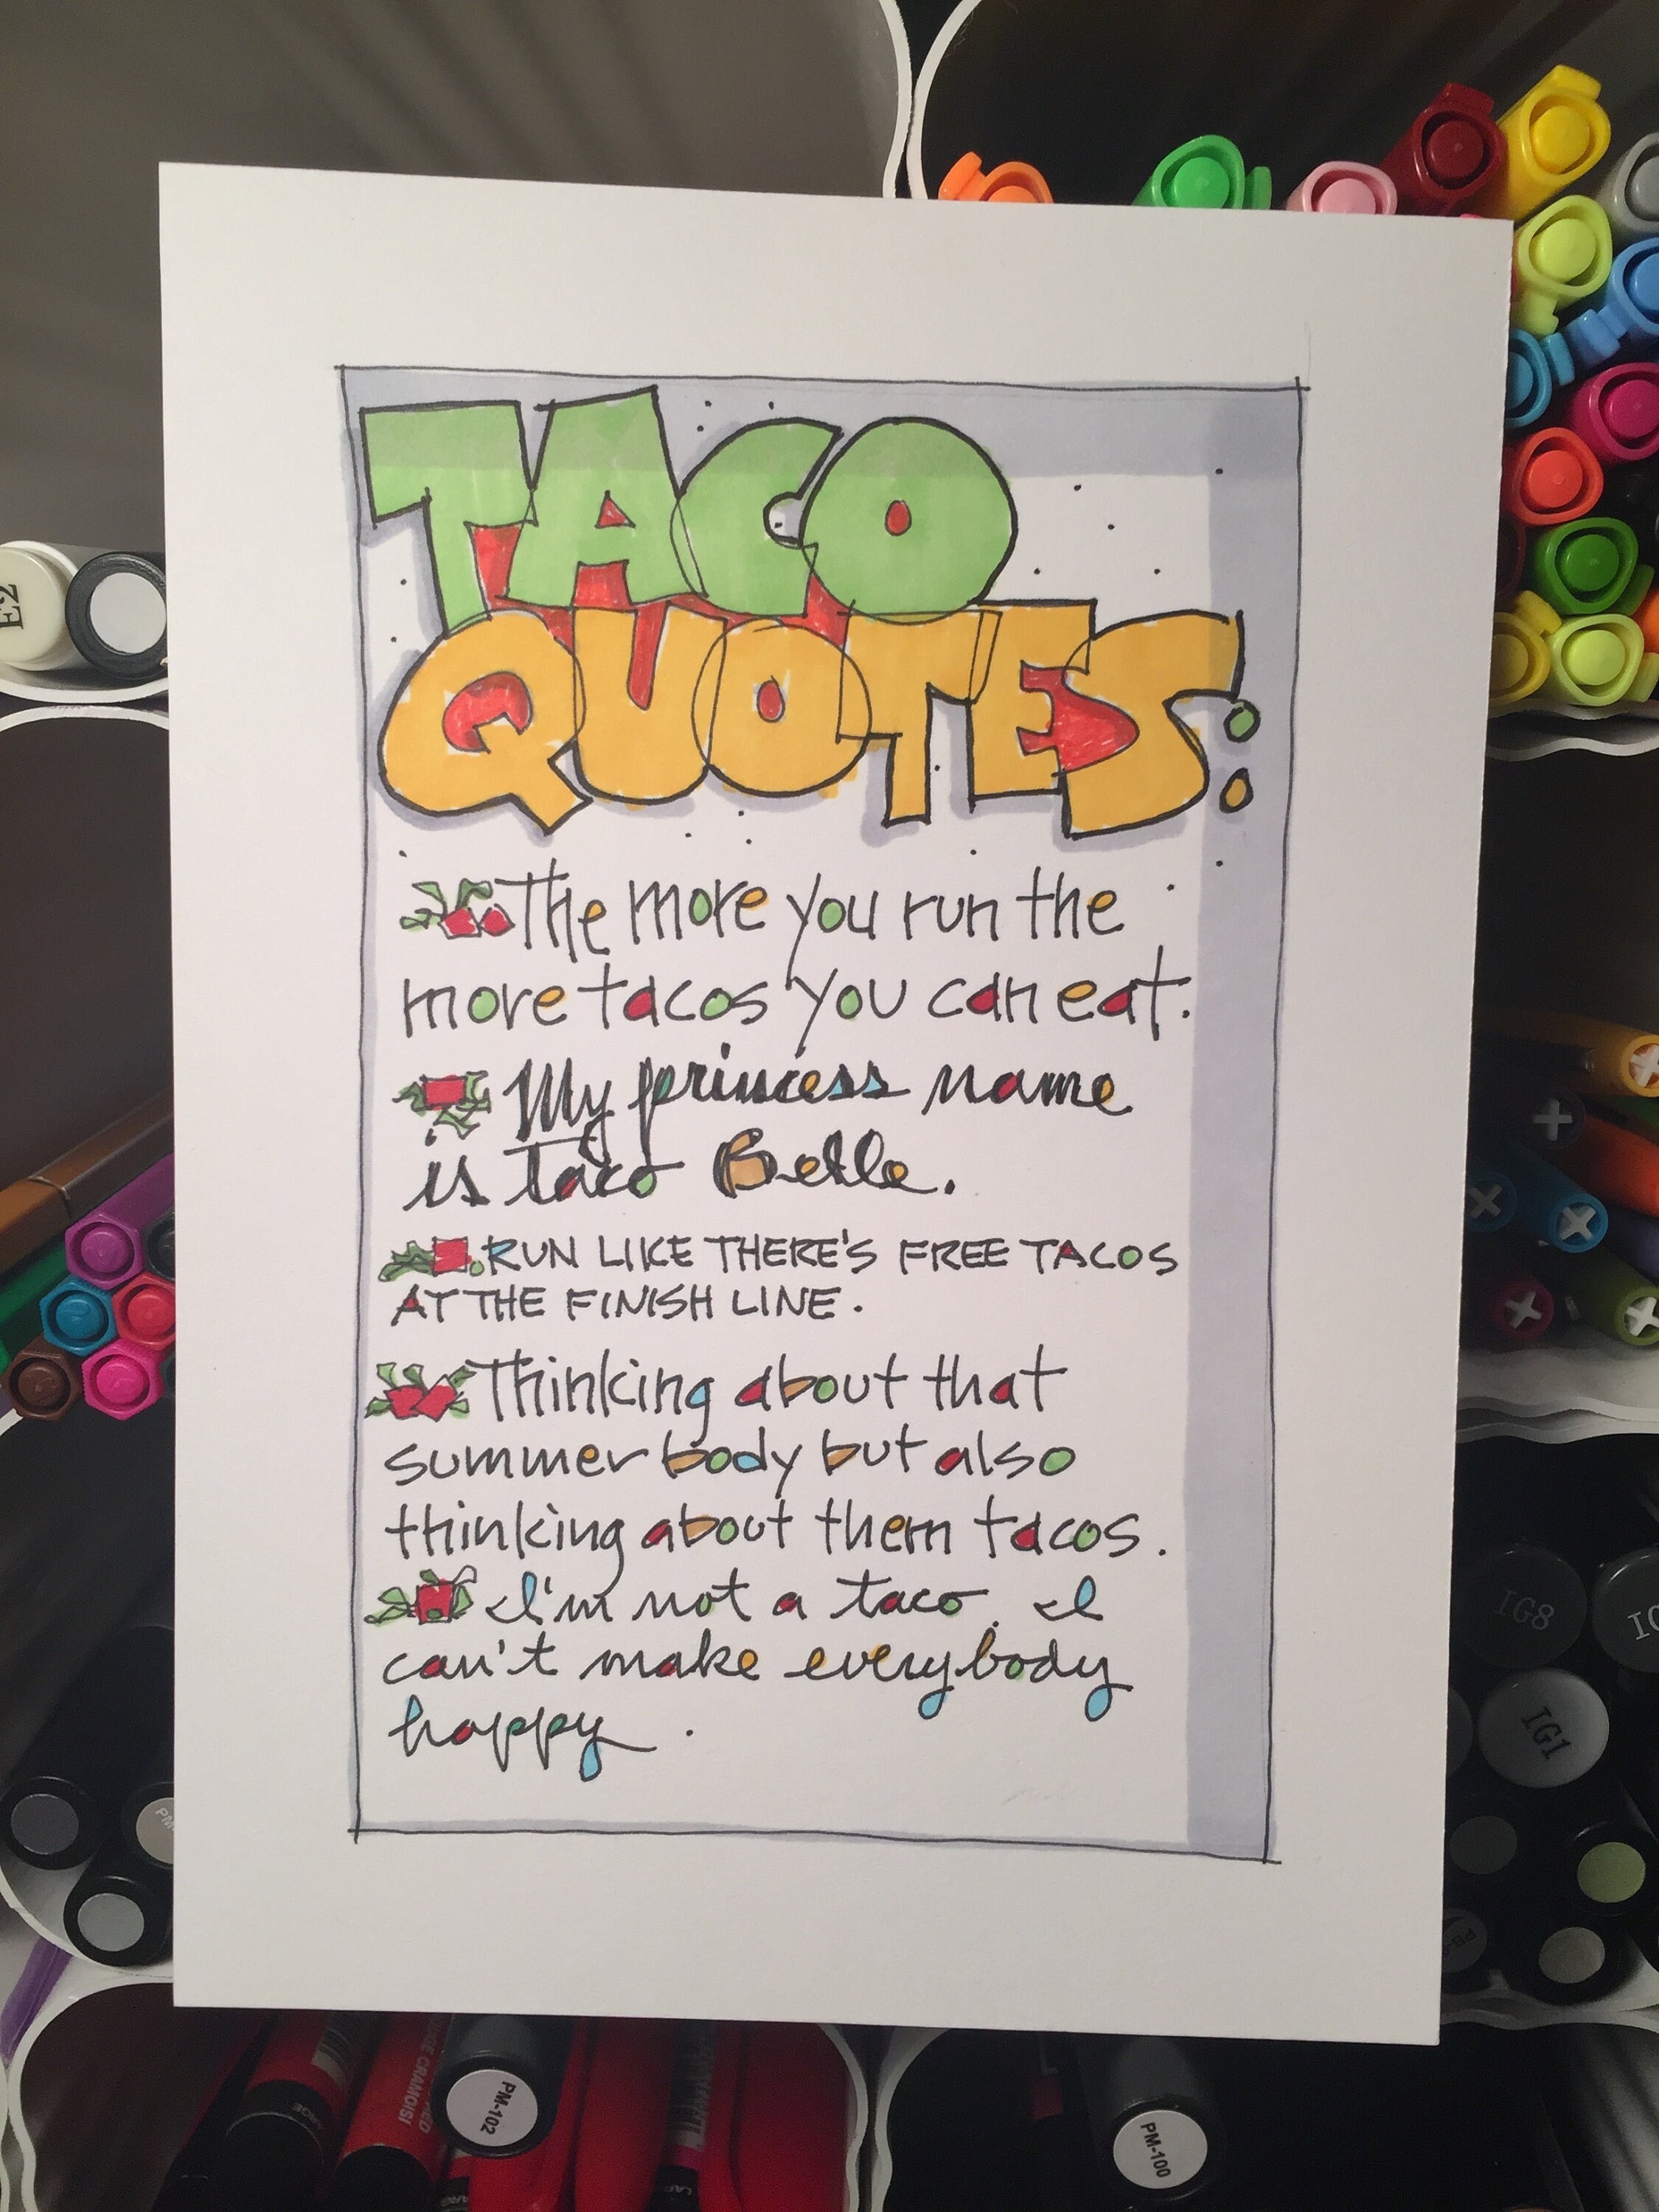 E2
TACO
QUOTES:
The more you run the
more tacos you can eat.
My princess name
is Taco Belle.
RUN LIKE THERE'S FREE TACOS
AT THE FINISH LINE.
Thinking about that
summer body but also
thinking about them tacos.
I'm not a taco. I
can't make everybody
happy.
IG8
IG1
PM-102
PM-100